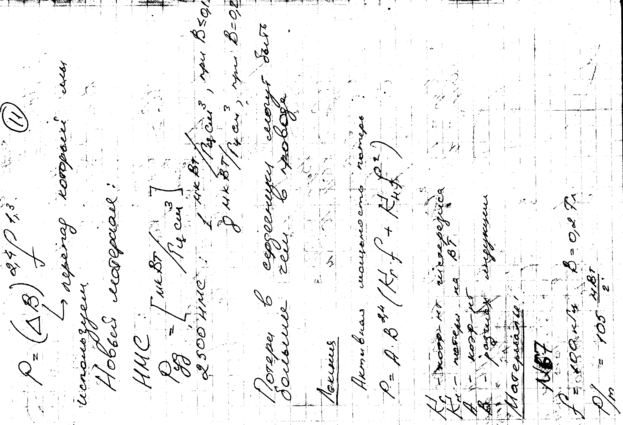 (11)
P = (ΔB)^2,4 f^1,3
↳ перепад который мы
используем
Новый материал:
НМС
Pуд = [мкВт/Гц см³]
2500НМС: 1 мкВт/Гц см³, при B=0,1
мкВт/Гц см³, при B=0,2
Потери в сердечнике могут быть
больше чем в проводе
Лекция
Активная мощность потерь
P = A·B (Kг f + Kн f²)
Kг - коэф-нт гистерезиса
- потери на ВТ
A - коэф-нт
B - размах индукции
Материалы:
f = 100 кГц B = 0,2 Тл
P/m = 105